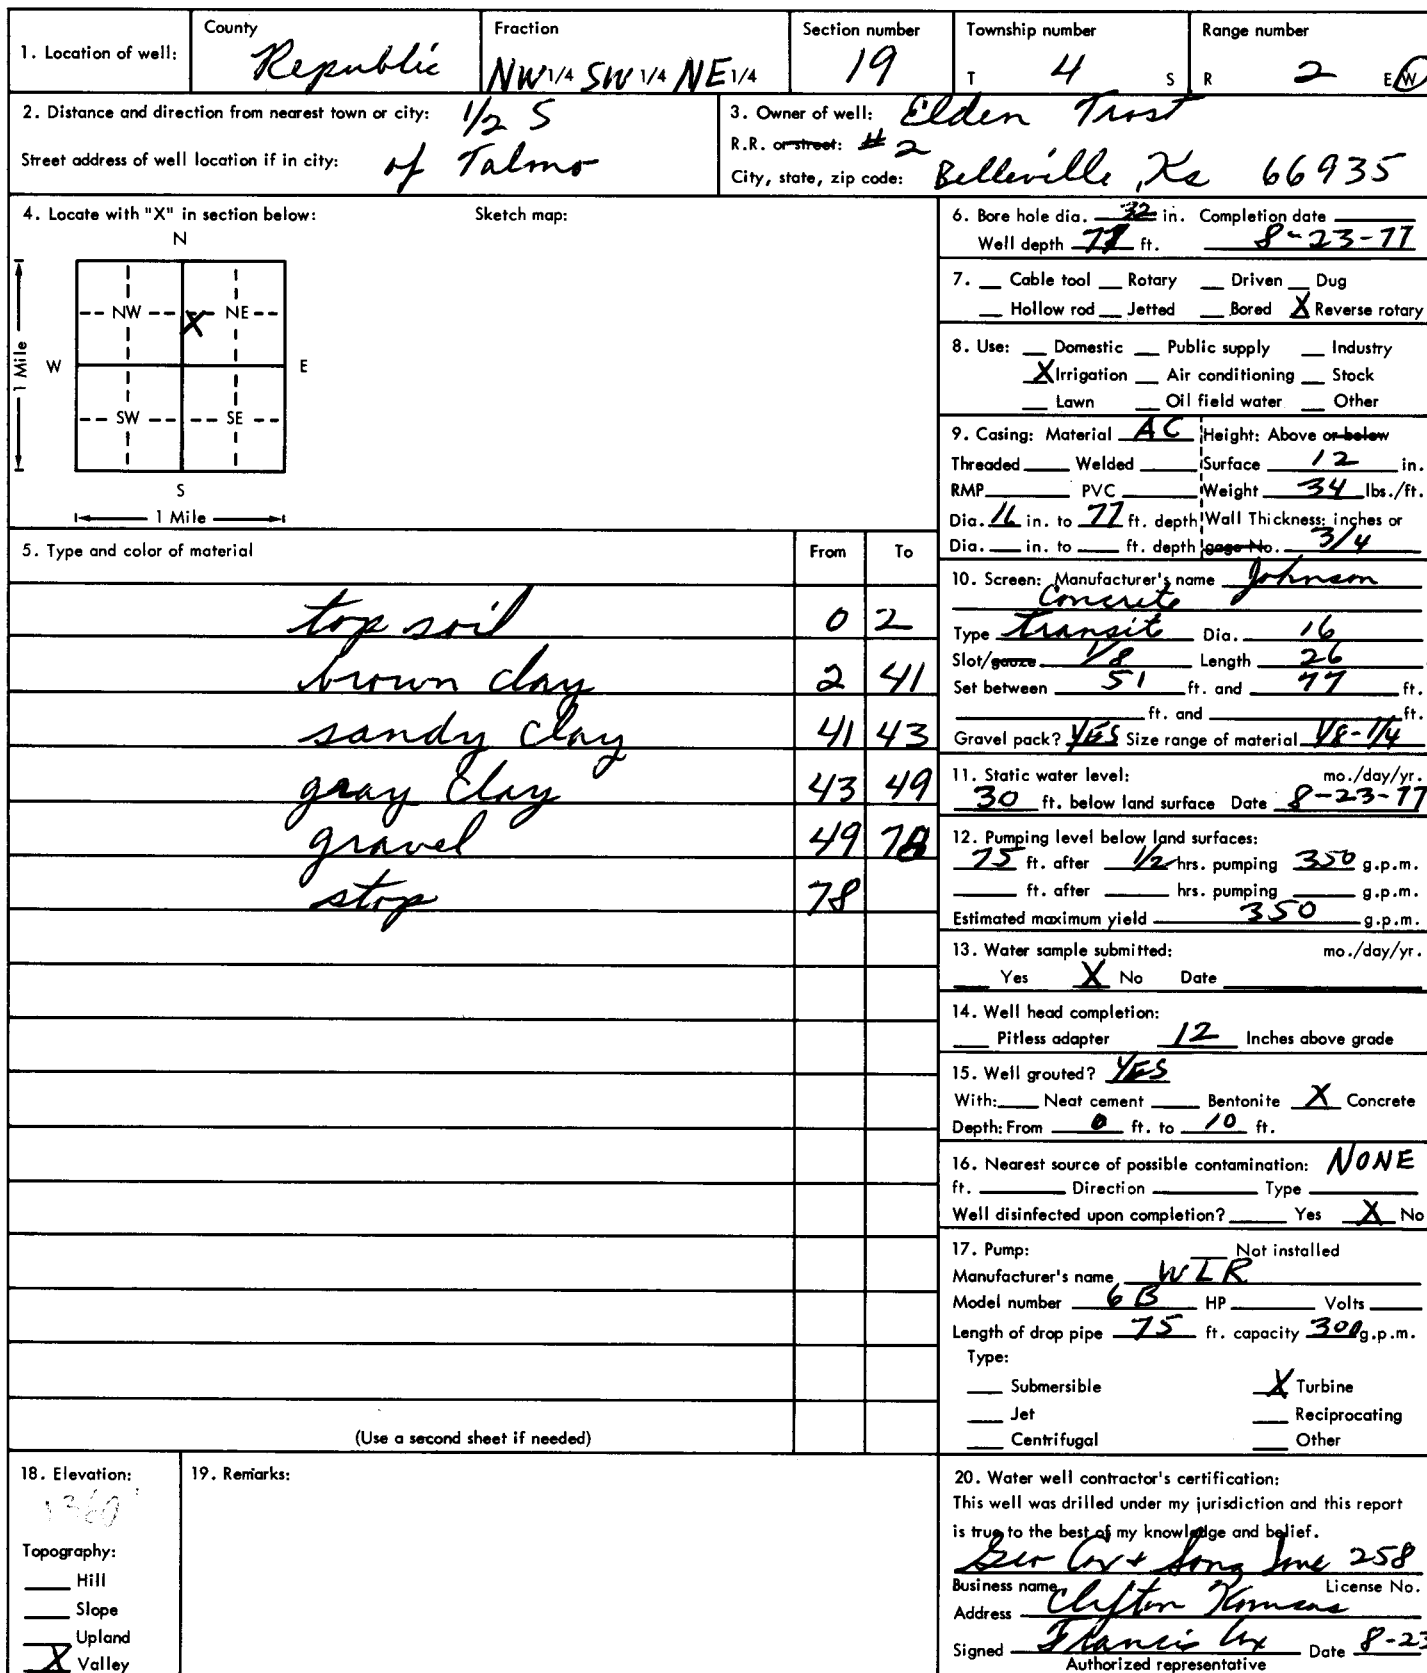 1. Location of well: County Republic Fraction NW 1/4 SW 1/4 NE 1/4 Section number 19 Township number T 4 S Range number R 2 E W
2. Distance and direction from nearest town or city: 1/2 S
Street address of well location if in city: of Talmo
3. Owner of well: Elden Trost
R.R. or street: # 2
City, state, zip code: Belleville, Ks 66935
4. Locate with "X" in section below: Sketch map:
N
NW X NE
W E
1 Mile
SW SE
S
1 Mile
5. Type and color of material From To
top soil 0 2
brown clay 2 41
sandy clay 41 43
gray clay 43 49
gravel 49 78
stop 78
(Use a second sheet if needed)
6. Bore hole dia. 32 in. Completion date
Well depth 77 ft. 8-23-77
7. Cable tool Rotary Driven Dug
Hollow rod Jetted Bored X Reverse rotary
8. Use: Domestic Public supply Industry
X Irrigation Air conditioning Stock
Lawn Oil field water Other
9. Casing: Material AC Height: Above or below
Threaded Welded Surface 12 in.
RMP PVC Weight 34 lbs./ft.
Dia. 16 in. to 77 ft. depth Wall Thickness: inches or
Dia. in. to ft. depth gage No. 3/4
10. Screen: Manufacturer's name Johnson
Concrete
Type Transit Dia. 16
Slot/gauze 1/8 Length 26
Set between 51 ft. and 77 ft.
ft. and ft.
Gravel pack? YES Size range of material 1/8-1/4
11. Static water level: mo./day/yr.
30 ft. below land surface Date 8-23-77
12. Pumping level below land surfaces:
75 ft. after 1/2 hrs. pumping 350 g.p.m.
ft. after hrs. pumping g.p.m.
Estimated maximum yield 350 g.p.m.
13. Water sample submitted: mo./day/yr.
Yes X No Date
14. Well head completion:
Pitless adapter 12 Inches above grade
15. Well grouted? YES
With: Neat cement Bentonite X Concrete
Depth: From 0 ft. to 10 ft.
16. Nearest source of possible contamination: NONE
ft. Direction Type
Well disinfected upon completion? Yes X No
17. Pump: Not installed
Manufacturer's name WLR
Model number 6 B HP Volts
Length of drop pipe 75 ft. capacity 300 g.p.m.
Type:
Submersible X Turbine
Jet Reciprocating
Centrifugal Other
18. Elevation:
1360
Topography:
Hill
Slope
Upland
X Valley
19. Remarks:
20. Water well contractor's certification:
This well was drilled under my jurisdiction and this report
is true to the best of my knowledge and belief.
Geo Cox + Sons Inc 258
Business name License No.
Address Clifton Kansas
Signed Francis Cox Date 8-23
Authorized representative